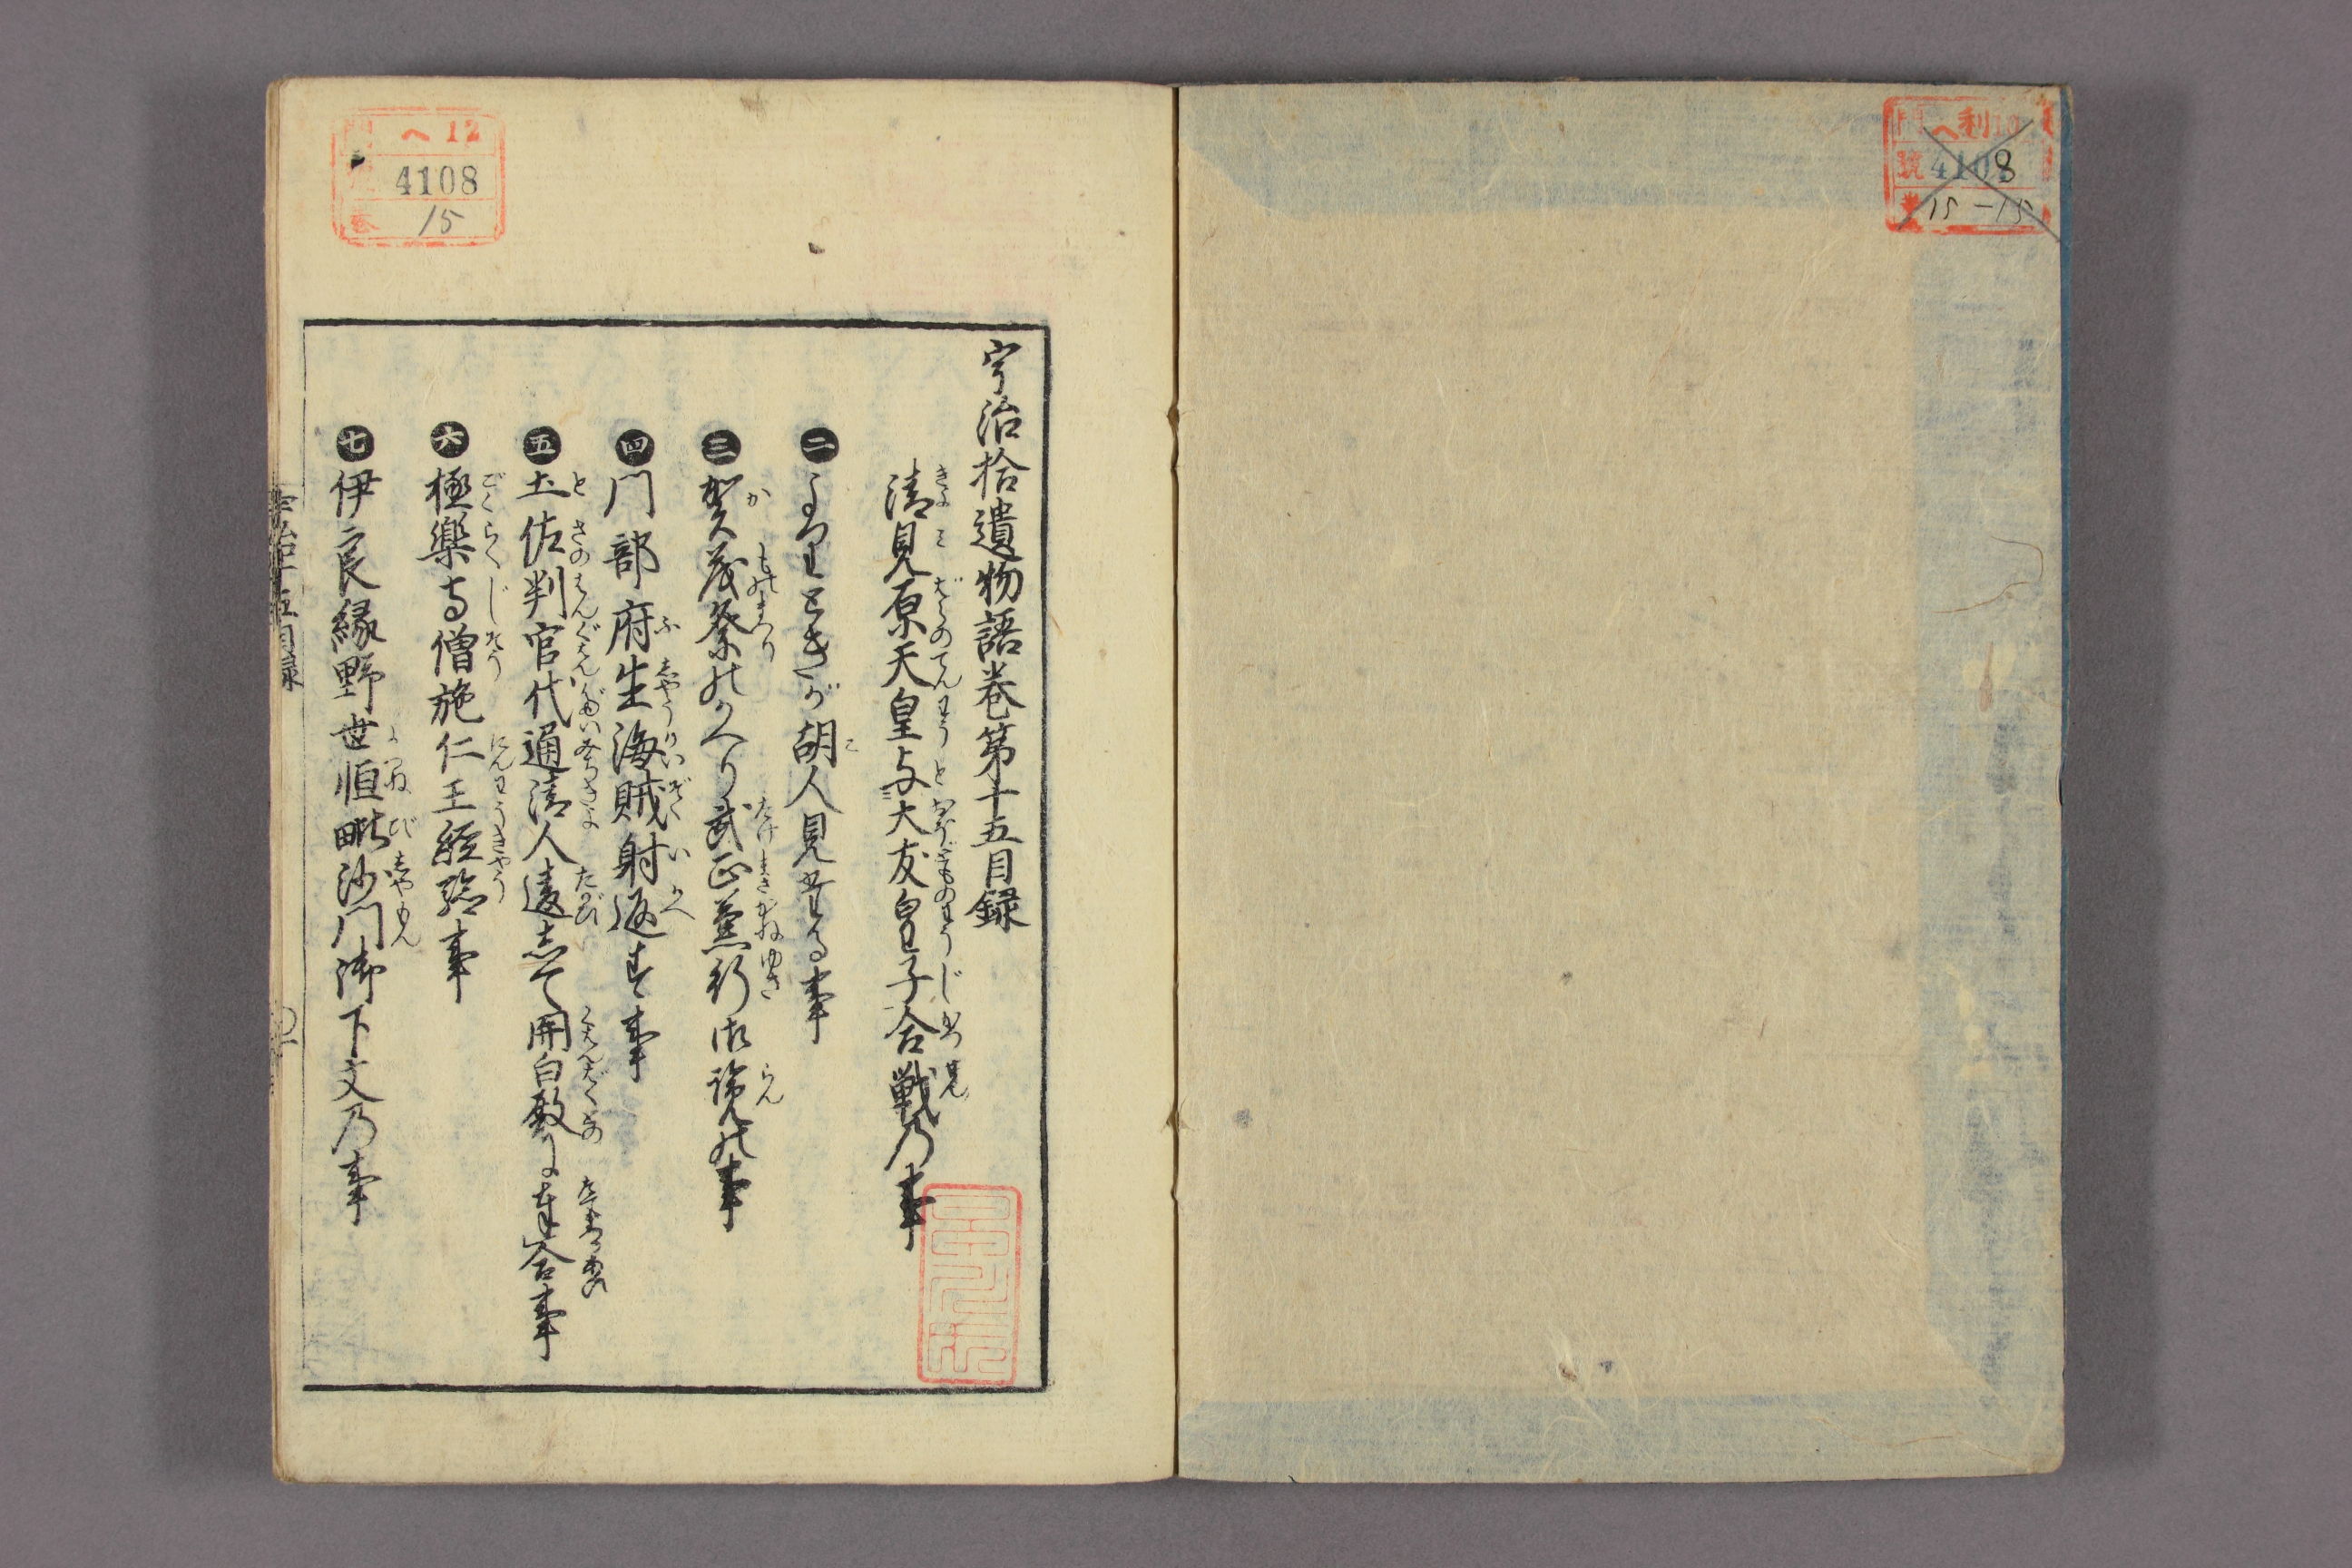 門 ヘ利10
號 4108
15-15
ヘ12
4108
巻 15
宇治拾遺物語巻第十五目録
清見原天皇与大友皇子合戦乃事
二 よりときが胡人見たる事
三 賀茂祭のかへり武正兼行御覧の事
四 門部府生海賊射返す事
五 土佐判官代通清人違して関白殿に奉合事
六 極楽寺僧施仁王経験事
七 伊良縁野世恒毗沙門御下文乃事
宇治十五目録